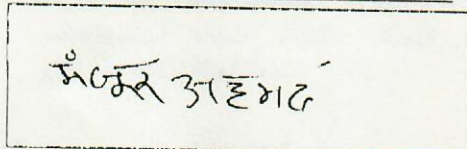 मंजूर अहमद